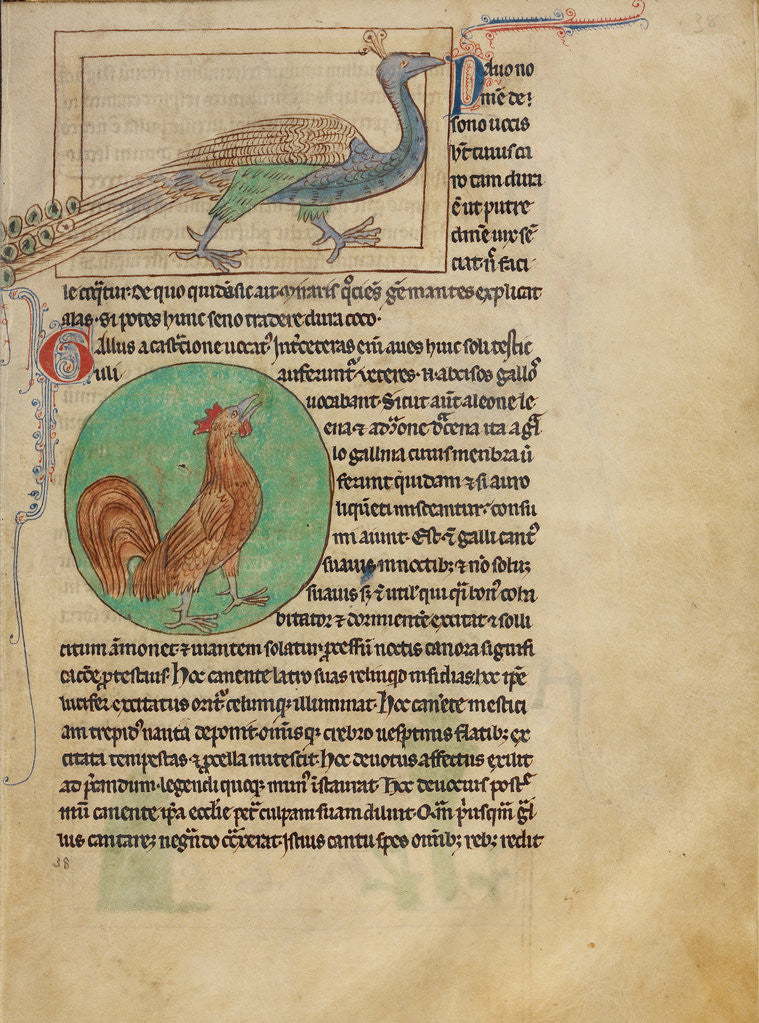 Pauo no
mē de
sono uocis
hꝫ cuius ca
ro tam dura
ē ut putre
dinē uix sē
ciat· n̄ faci
le coq̄tur· de quo quidā sic ait· Miraris q̄ciēs gēmantes explicat
alas· Si potes hunc seno tradere dura coco·
Gallus a castratione uocat᷒· Int᷒ ceteras eīm aues huic soli testic
uli auferunt᷒· Veteres· n̄· abcisos gallos
uocabant· Sicut aūt a leone le
ena ⁊ a dͣcone dͣcena ita a gͣl
lo gallina cuius menbra ū
ferunt quidam ⁊ si auro
liqueti misceantur· consu
mi aiunt· Est· ē galli cant᷒
suauis in noctibꝫ ⁊ nō solū
suauis sꝫ ē utilꝰ qui qͣi bon᷒ coha
bitator ⁊ dormientē excitat ⁊ solli
citum āmonet ⁊ uiantem solatur ꝓcessū noctis canora signifi
cacōē ꝓtestans· Hoc canente latro suas relinqd insidias· hoc ipē
lucifer excitatus orit᷒ celumqꝫ illuminat· Hoc canēte mestici
am trepidꝰ nauta deponit· omīsqꝫ crebro uesp̄tinis flatibꝫ ex
citata tempestas ⁊ ꝓcella mitescit· Hoc deuotus affectus exilit
ad p̄candum· legendi quoqꝫ munꝰ īstaurat· Hoc
mū canente ip̄a ecclīe petͣ culpam suam diluit· Qͣm pͥusqͣm gͣl
lus cantaret negͣndo cͨtxerat· Istius cantu spes om̄ibꝫ rebꝫ redit
38